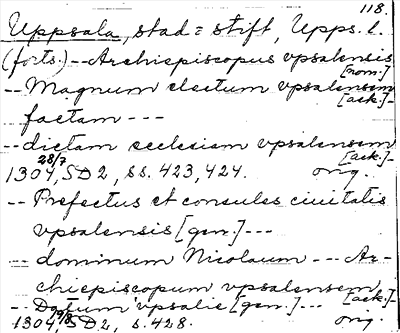 118.
Uppsala, stad = stift, Upps. l.
(forts.) -- Archiepiscopus vpsalensis
[nom.]
-- Magnum electum vpsalensem
[ack.] -
factam ---
-- dictam ecclesiam vpsalensem
[ack.] -
1304 28/7, SD 2, ss. 423, 424. orig.
-- Prefectus et consules ciuitatis
vpsalensis [gen.] ---
-- dominum Nicolaum --- Ar-
chiepiscopum vpsalensem,
[ack.] -
-- Datum vpsalie [gen.] ---
1304, SD 2, s. 428. orig.